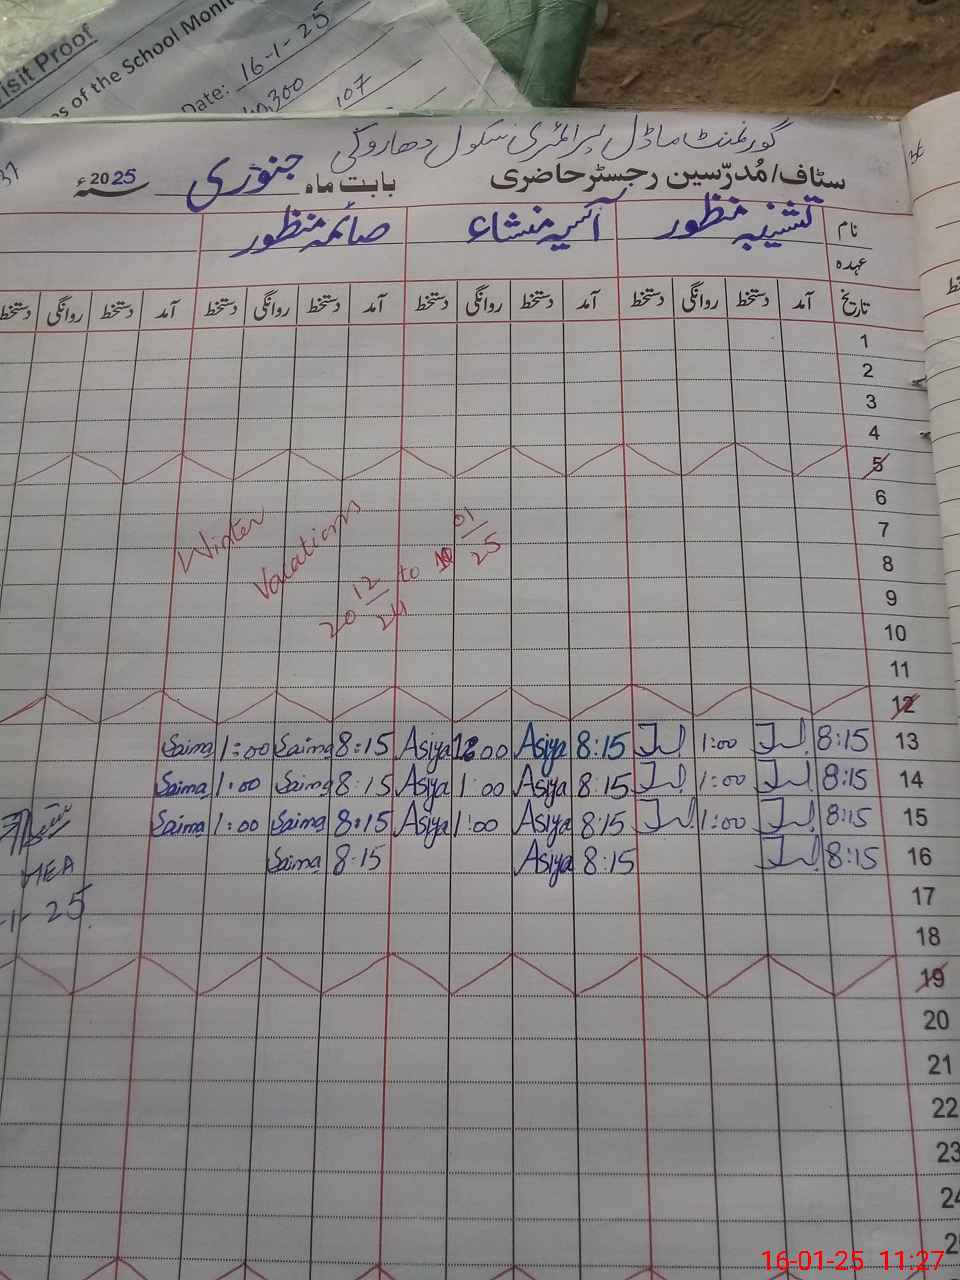 isit Proof
es of the School Monit
Date: 16-1-25
40,300
107
37
گورنمنٹ ماڈل پرائمری سکول دھاروکی
سٹاف/مُدرّسین رجسٹر حاضری بابت ماہ جنوری سنہ 2025ء
نام تشنیبہ منظور آسیہ منشاء صائمہ منظور
عہدہ
تاریخ آمد دستخط روانگی دستخط آمد دستخط روانگی دستخط آمد دستخط روانگی دستخط آمد دستخط روانگی دستخط
1
2
3
4
5
6
7
8
9
10
11
12
Winter
Vacations
20 12/24 to 10 01/25
Saima 1:00 Saima 8:15 Asiya 1:00 Asiya 8:15 1:00 8:15 13
Saima 1:00 Saima 8:15 Asiya 1:00 Asiya 8:15 1:00 8:15 14
Saima 1:00 Saima 8:15 Asiya 1:00 Asiya 8:15 1:00 8:15 15
Saima 8:15 Asiya 8:15 8:15 16
MEA
-1-25
17
18
19
20
21
22
23
24
2
16-01-25 11:27